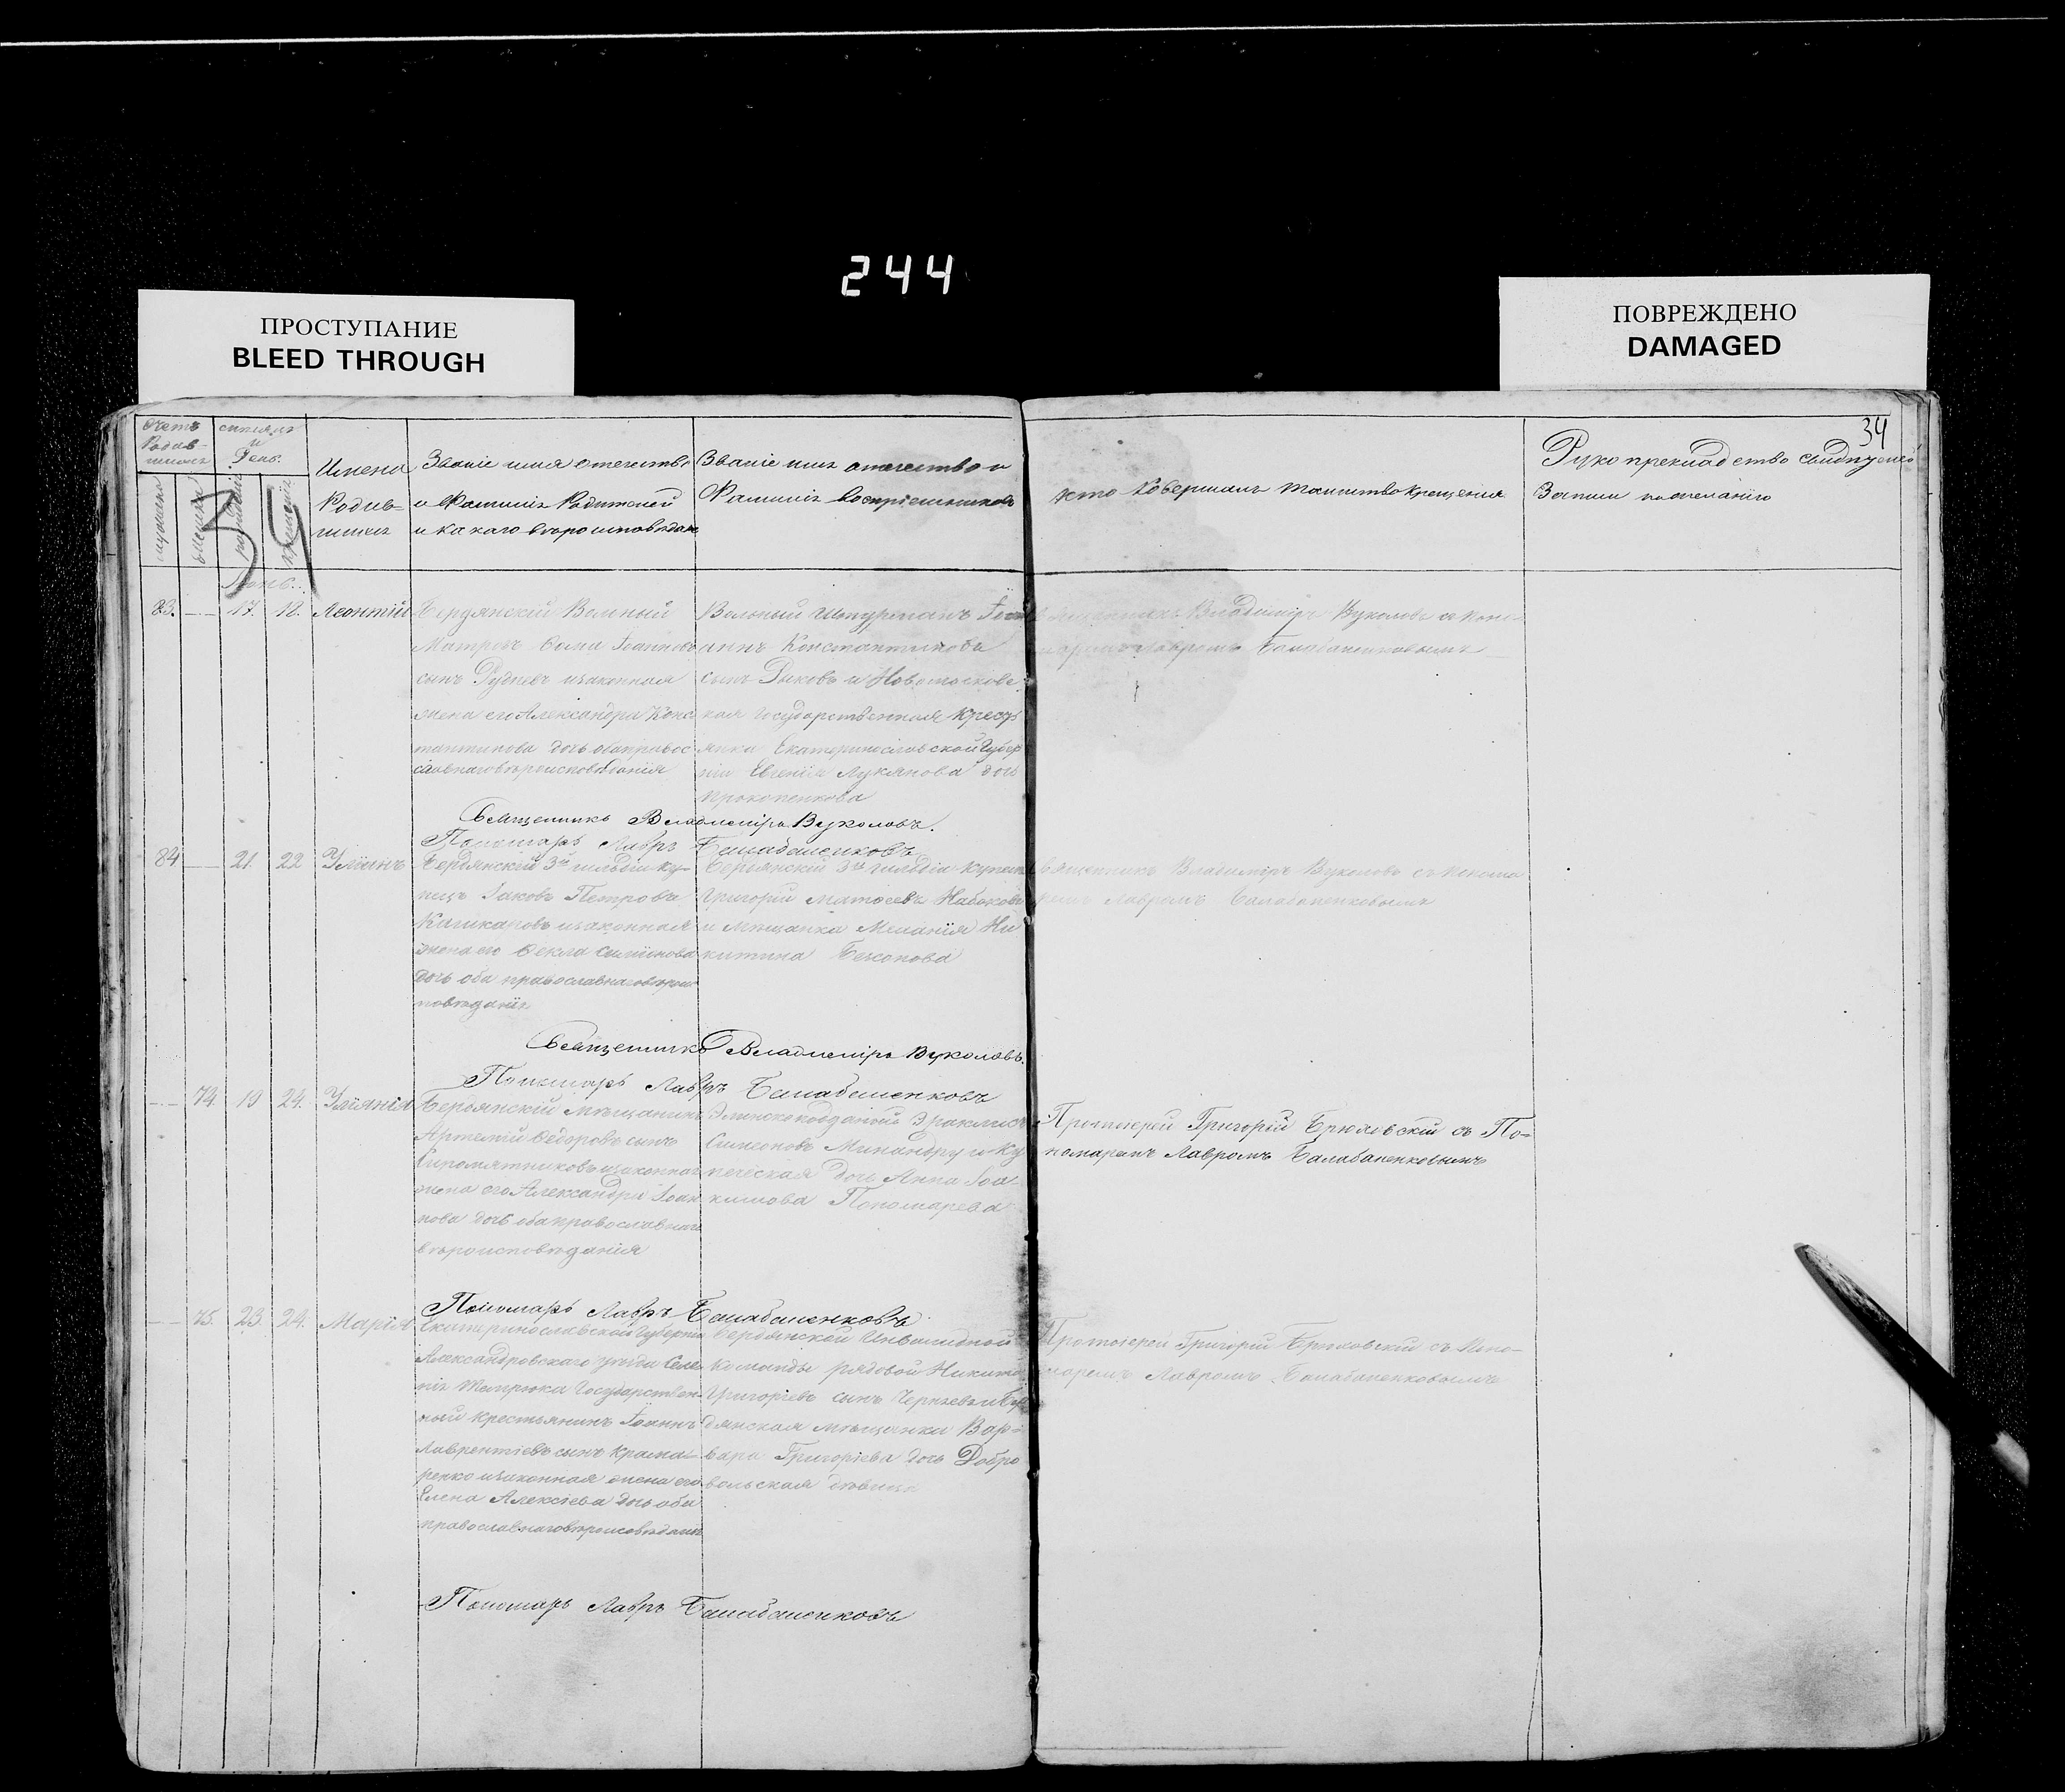 244
ПРОСТУПАНИЕ
BLEED THROUGH
ПОВРЕЖДЕНО
DAMAGED
34
Счетъ
Родив-
шихся
и
День.
Имена
Родив-
шихся
Званіе имя отечество
и Фамилія Родителей
и какаго вѣроисповѣдан
Званіе имя отечество и
Фамилія воспріемниковъ
кто совершалъ таинство крещенія
Рукоприкладство свидѣтелей
Записи по желанію
34
83. 17. 18. Леонтій
Бердянскій Вольный
Матрозъ Іоанновъ
сынъ изаконная
жена его Александра Конс
тантинова дочь оба правос
славнаго вѣроисповѣданія
Вольный Штурманъ
Константиновъ
сынъ Рыковъ и Новомосков
кая Государственная Кресть
янка Екатеринославской Губер
ніи Евгенія Лукянова дочь
Прокопенкова
Владиміръ Вуколовъ съ Поно
маремъ Лавромъ Балабаненковымъ
Священникъ Владиміръ Вуколовъ.
Пономарь Лавръ Балабаненковъ
84 21. 22 Уліанъ
Бердянскій 3й гильдіи Ку-
пецъ Іаковъ Петровъ
изаконная
жена его Фекла Симіонова
дочь оба православнаго вѣроис
повѣданія
Бердянскій 3й гильдіи купецъ
Григорій Матфеевъ Набоковъ
и Мѣщанка Меланія Ни
китина
Священникъ Владиміръ Вуколовъ съ Понома
ремъ Лавромъ Балабаненковымъ
Священникъ Владиміръ Вуколовъ.
Пономарь Лавръ Балабаненковъ
74. 19 24. Уліянія
Бердянскій Мѣщанинъ
Артемій Федоровъ сынъ
Сыромятниковъ изаконная
жена его Александра Іоан
нова дочь оба православнаго
вѣроисповѣданія
Симеоновъ и Ку
печеская дочь Анна Іоа-
кимова Пономарева
Протоіерей Григорій Брюховскій съ По-
номаремъ Лавромъ Балабаненковымъ
Пономарь Лавръ Балабаненковъ
75. 23. 24. Марія
Екатеринославской Губерніи
Александровскаго уѣзда Селе
нія Государствен
ный крестьянинъ Іоаннъ
Лаврентіевъ сынъ Крама
ренко изаконная жена его
Елена Алексіева дочь оба
православнаго вѣроисповѣданія
Бердянской Инвалидной
Команды рядовой Никита
Григоріевъ сынъ
дянская мѣщанка Вар-
вара Григоріева дочь Добро
вольская дѣвица
Протоіерей Григорій Брюховскій съ Поно-
маремъ Лавромъ Балабаненковымъ
Пономарь Лавръ Балабаненковъ